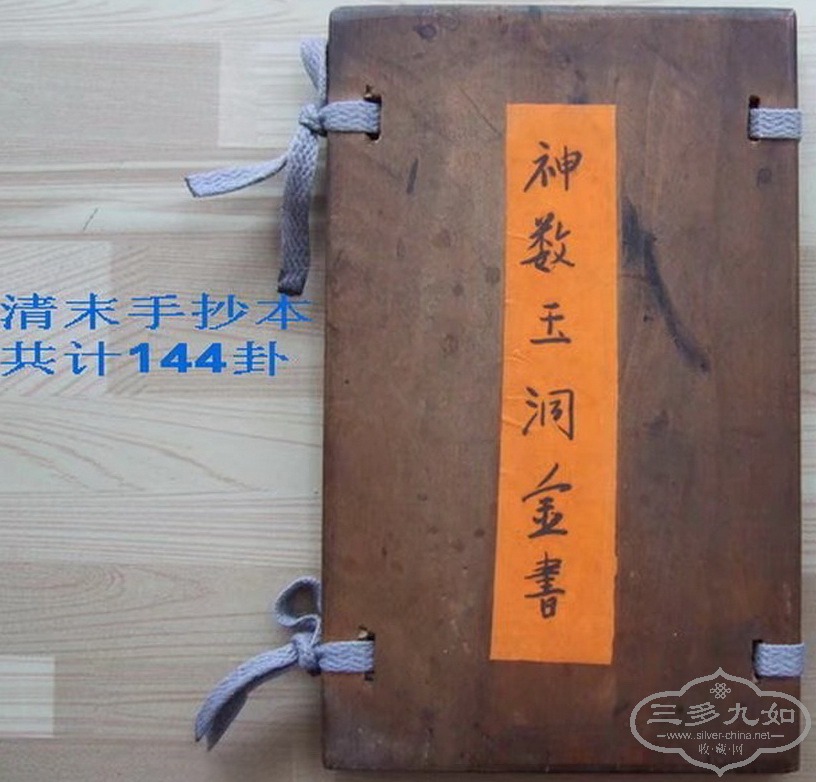 清末手抄本
共计144卦
神数玉洞金書
三多九如
www.silver-china.net
收·藏·网